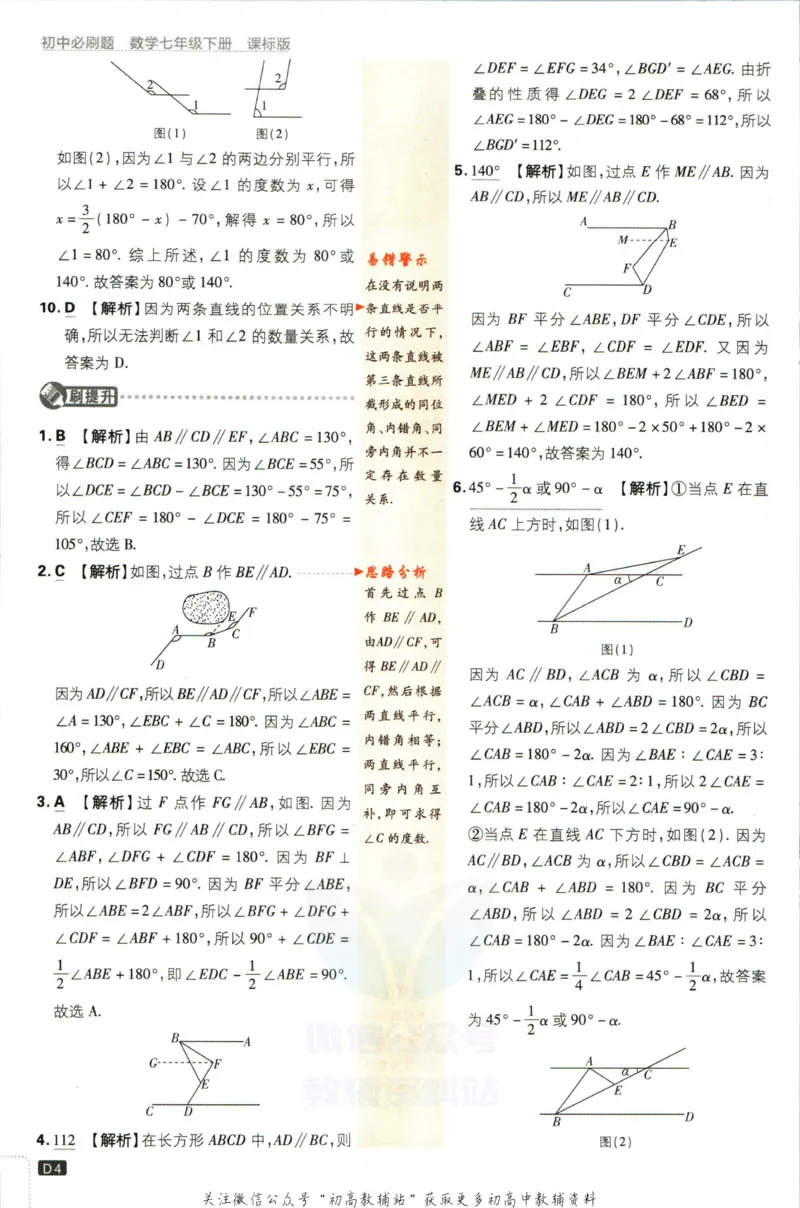 初中必刷题 数学七年级下册 课标版
2
1
图(1)
2
1
图(2)
如图(2),因为∠1与∠2的两边分别平行,所
以∠1 + ∠2 = 180°. 设∠1 的度数为 x,可得
x = 3/2 (180° - x) - 70°,解得 x = 80°,所以
∠1 = 80°. 综上所述,∠1 的度数为 80°或
140°. 故答案为 80°或 140°.
10. D 【解析】因为两条直线的位置关系不明
确,所以无法判断∠1 和∠2 的数量关系,故
答案为 D.
刷提升
1. B 【解析】由 AB∥CD∥EF,∠ABC = 130°,
得∠BCD = ∠ABC = 130°. 因为∠BCE = 55°,所
以∠DCE = ∠BCD - ∠BCE = 130° - 55° = 75°,
所以 ∠CEF = 180° - ∠DCE = 180° - 75° =
105°,故选 B.
2. C 【解析】如图,过点 B 作 BE∥AD.
A
B
C
D
E
F
因为 AD∥CF,所以 BE∥AD∥CF,所以∠ABE =
∠A = 130°,∠EBC + ∠C = 180°. 因为∠ABC =
160°,∠ABE + ∠EBC = ∠ABC,所以∠EBC =
30°,所以∠C = 150°. 故选 C.
3. A 【解析】过 F 点作 FG∥AB,如图. 因为
AB∥CD,所以 FG∥AB∥CD,所以∠BFG =
∠ABF,∠DFG + ∠CDF = 180°. 因为 BF ⊥
DE,所以∠BFD = 90°. 因为 BF 平分∠ABE,
所以∠ABE = 2∠ABF,所以∠BFG + ∠DFG +
∠CDF = ∠ABF + 180°,所以 90° + ∠CDE =
1/2 ∠ABE + 180°,即∠EDC - 1/2 ∠ABE = 90°.
故选 A.
B
A
G
F
E
C
D
4. 112 【解析】在长方形 ABCD 中,AD∥BC,则
D4
易错警示
在没有说明两
条直线是否平
行的情况下,
这两条直线被
第三条直线所
截形成的同位
角、内错角、同
旁内角并不一
定存在数量
关系.
思路分析
首先过点 B
作 BE∥AD,
由AD∥CF,可
得 BE∥AD∥
CF,然后根据
两直线平行,
内错角相等;
两直线平行,
同旁内角互
补,即可求得
∠C的度数.
∠DEF = ∠EFG = 34°,∠BGD′ = ∠AEG. 由折
叠的性质得 ∠DEG = 2 ∠DEF = 68°,所以
∠AEG = 180° - ∠DEG = 180° - 68° = 112°,所以
∠BGD′ = 112°.
5. 140° 【解析】如图,过点 E 作 ME∥AB. 因为
AB∥CD,所以 ME∥AB∥CD.
A
B
M
E
F
C
D
因为 BF 平分∠ABE,DF 平分∠CDE,所以
∠ABF = ∠EBF,∠CDF = ∠EDF. 又因为
ME∥AB∥CD,所以∠BEM + 2∠ABF = 180°,
∠MED + 2 ∠CDF = 180°,所以 ∠BED =
∠BEM + ∠MED = 180° - 2 × 50° + 180° - 2 ×
60° = 140°,故答案为 140°.
6. 45° - 1/2 α 或 90° - α 【解析】①当点 E 在直
线 AC 上方时,如图(1).
A
E
α
C
B
D
图(1)
因为 AC∥BD,∠ACB 为 α,所以∠CBD =
∠ACB = α,∠CAB + ∠ABD = 180°. 因为 BC
平分∠ABD,所以∠ABD = 2∠CBD = 2α,所以
∠CAB = 180° - 2α. 因为∠BAE∶∠CAE = 3∶
1,所以∠CAB∶∠CAE = 2∶1,所以 2∠CAE =
∠CAB = 180° - 2α,所以∠CAE = 90° - α.
②当点 E 在直线 AC 下方时,如图(2). 因为
AC∥BD,∠ACB 为 α,所以∠CBD = ∠ACB =
α,∠CAB + ∠ABD = 180°. 因为 BC 平分
∠ABD,所以∠ABD = 2∠CBD = 2α,所以
∠CAB = 180° - 2α. 因为∠BAE∶∠CAE = 3∶
1,所以∠CAE = 1/4 ∠CAB = 45° - 1/2 α,故答案
为 45° - 1/2 α 或 90° - α.
A
α
C
E
B
D
图(2)
微信公众号
教辅资料站
关注微信公众号“初高教辅站”获取更多初高中教辅资料